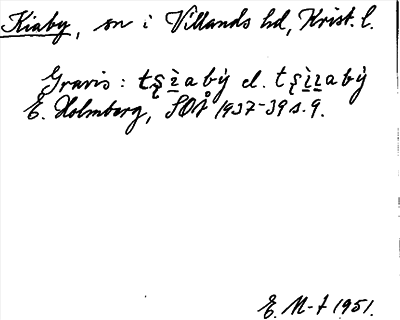 Kiaby, sn i Villands hd, Krist. l.
Gravis: tʂìabẏ el. tʂìɩabẏ
E. Holmberg, SOÅ 1937-39 s. 9.
E. M-t 1951.